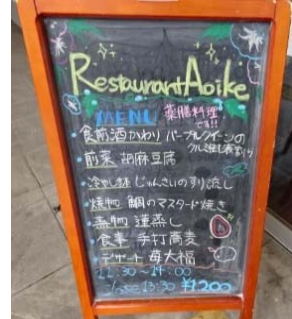 Restaurant Aoike
MENU 薬膳料理
です!!
食前酒かわり パープルクイーンの
・前菜 胡麻豆腐
・冷やし鉢 じゅんさいのすり流し
・焼物 鯛のマスタード焼き
・蒸物 蓮蒸し
・食事 手打蕎麦
デザート 苺大福
11:30〜14:00
13:30 ¥1,200